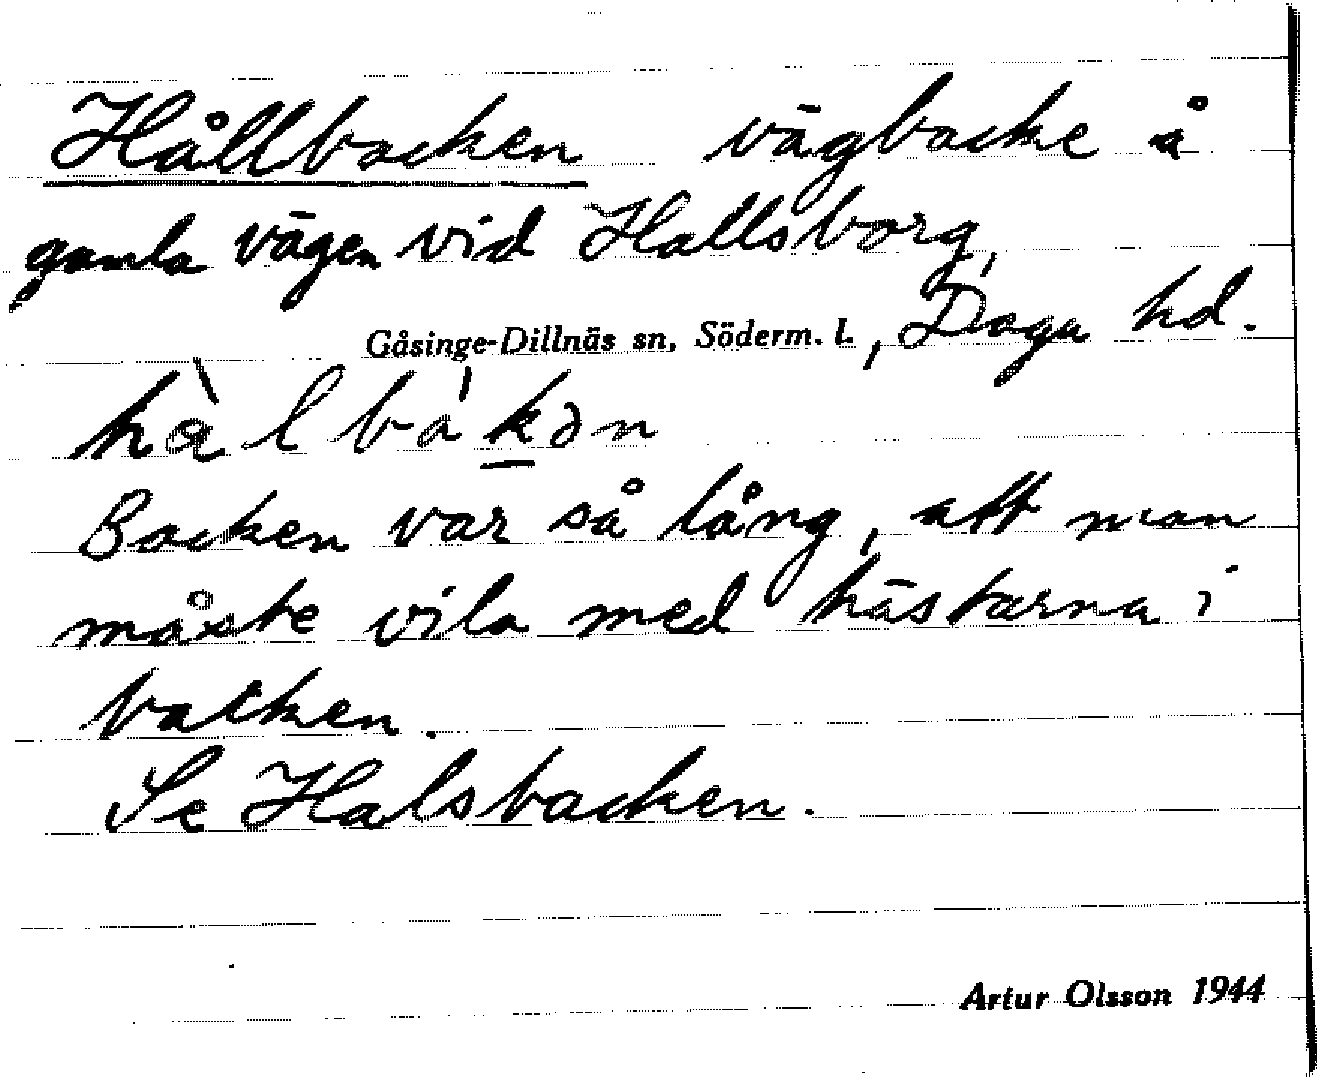 Hållbacken vägbacke å
gamla vägen vid Hallsborg,
Gåsinge-Dillnäs sn, Söderm. l., Daga hd.
hàlbàkən
Backen var så lång, att man
måste vila med hästarna i
backen.
Se Halsbacken.
Artur Olsson 1944